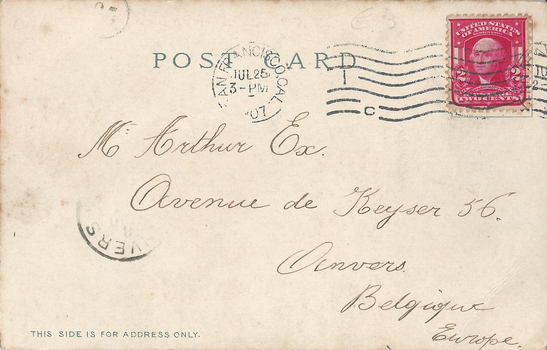 POST CARD
SAN FRANCISCO, CAL.
JUL 25
3-PM
07
C
UNITED STATES
OF AMERICA
2 2
TWO CENTS
M Arthur Ex.
Avenue de Keyser 56.
Anvers
Belgique
Europe.
VERS
THIS SIDE IS FOR ADDRESS ONLY.